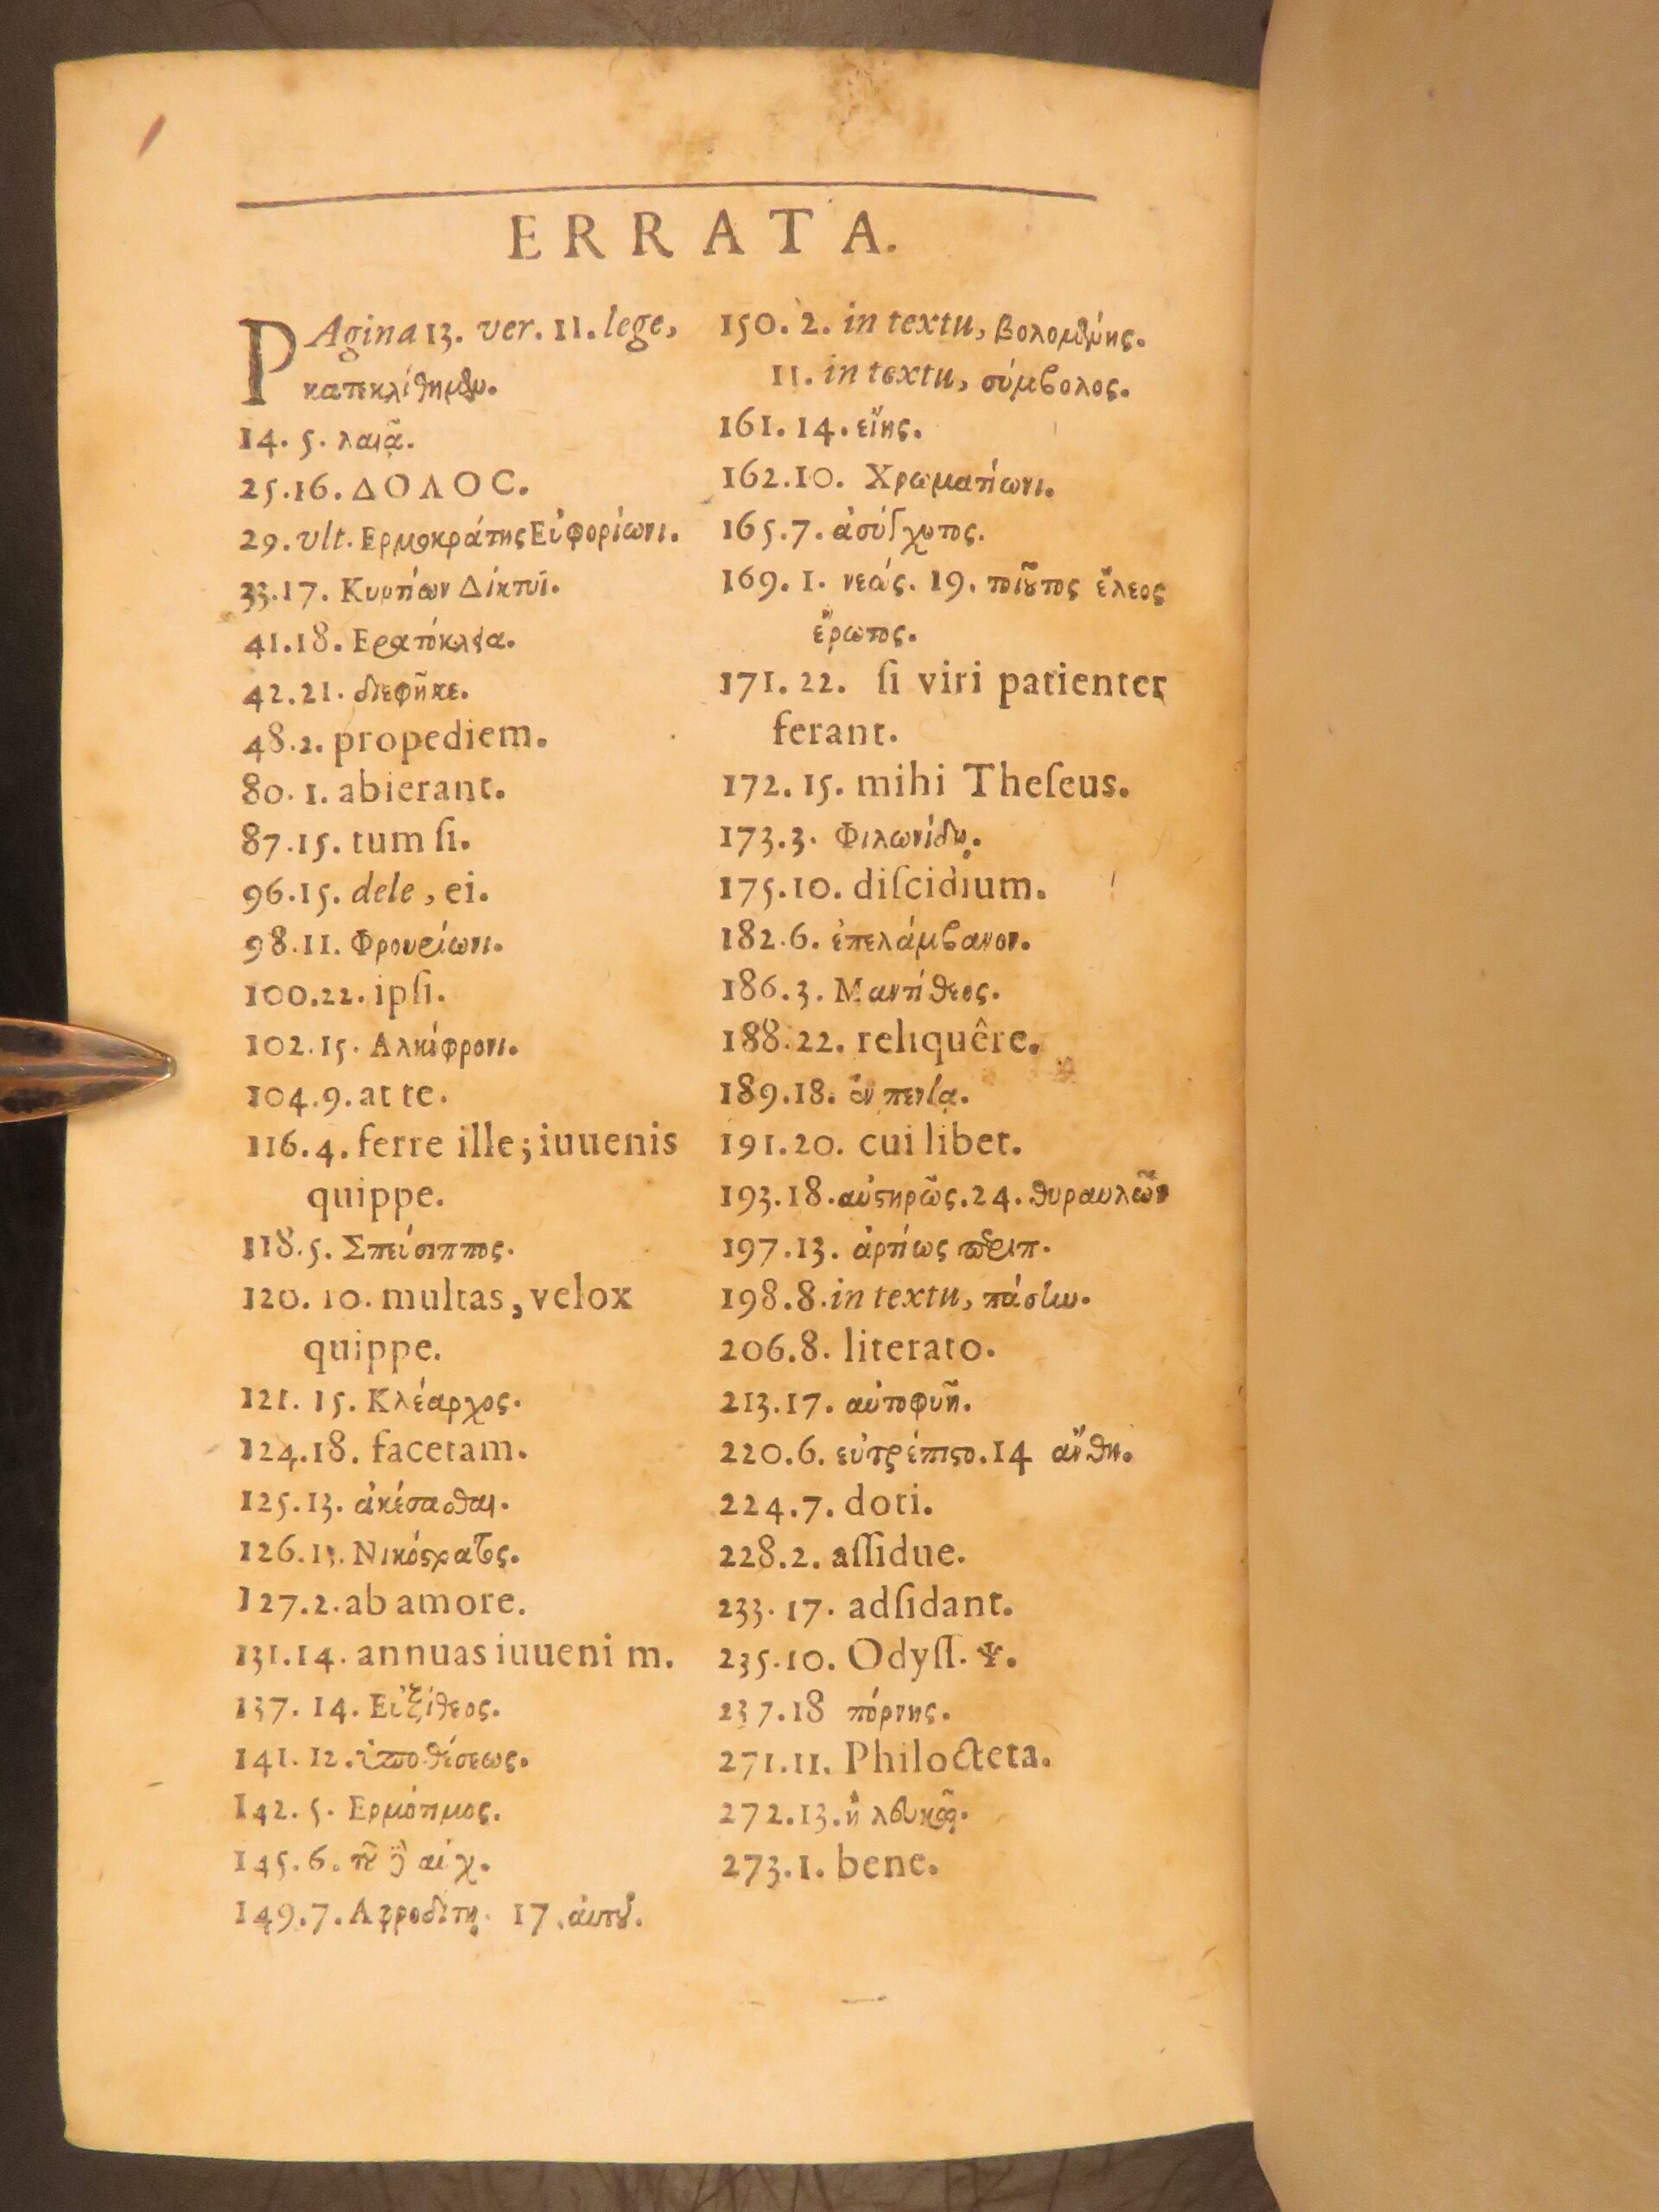 ERRATA.
PAgina 13. ver. 11. lege,
κατεκλίθημεν.
14. 5. λαιᾷ.
25.16. ΔΟΛΟC.
29. vlt. Ερμοκράτης Εὐφορίωνι.
33.17. Κυρτίων Δίκτυϊ.
41.18. Ερατόκλεια.
42.21. διεφῆκε.
48.2. propediem.
80. 1. abierant.
87.15. tum ſi.
96.15. dele, ei.
98.11. Φρουρίωνι.
100.22. ipſi.
102.15. Αλκίφρονι.
104.9. at te.
116.4. ferre ille; iuuenis
quippe.
118.5. Σπεύσιππος.
120. 10. multas, velox
quippe.
121. 15. Κλέαρχος.
124.18. facetam.
125.13. ἀκέσασθαι.
126.13. Νικόστρατος.
127.2. ab amore.
131.14. annuas iuueni m.
137. 14. Εὐξίθεος.
141. 12. ὑποθέσεως.
142. 5. Ερμότιμος.
145.6. αἰχ.
149.7. Αφροδίτῃ. 17. αὐτοῦ.
150. 2. in textu, βολομένης.
11. in textu, σύμβολος.
161. 14. εἴης.
162.10. Χρωματίωνι.
165.7. ἀσύγχυτος.
169. 1. νεάς. 19. ποιοῦτος ἔλεος
ἔρωτος.
171. 22. ſi viri patienter
ferant.
172. 15. mihi Theſeus.
173.3. Φιλωνίδῃ.
175.10. diſcidium.
182.6. ἐπελάμβανον.
186.3. Μαντίθεος.
188.22. reliquêre.
189.18. ἐν πενίᾳ.
191.20. cui libet.
193.18. αὐστηρῶς. 24. θυραυλῶν
197.13. ἀρτίως περιπ.
198.8. in textu, πάσῃ.
206.8. literato.
213.17. αὐτοφυῆ.
220.6. εὐτρέπιστο. 14 ἄνθη.
224.7. doti.
228.2. aſſidue.
233. 17. adſidant.
235.10. Odyſſ. Ψ.
237.18 πόρνης.
271.11. Philocteta.
272.13. ἡ λευκὴ.
273.1. bene.